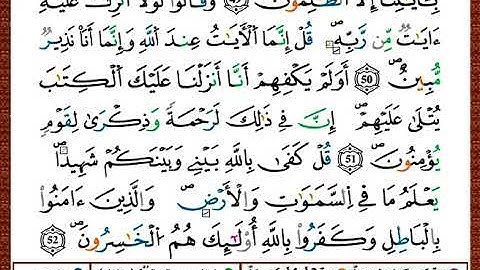 بِـَٔايَـٰتِنَآ إِلَّا ٱلظَّـٰلِمُونَ ٤٩ وَقَالُوا۟ لَوْلَآ أُنزِلَ عَلَيْهِ
ءَايَـٰتٌ مِّن رَّبِّهِۦ قُلْ إِنَّمَا ٱلْـَٔايَـٰتُ عِندَ ٱللَّهِ وَإِنَّمَآ أَنَا۠ نَذِيرٌ
مُّبِينٌ 50 أَوَلَمْ يَكْفِهِمْ أَنَّآ أَنزَلْنَا عَلَيْكَ ٱلْكِتَـٰبَ
يُتْلَىٰ عَلَيْهِمْ إِنَّ فِى ذَٰلِكَ لَرَحْمَةً وَذِكْرَىٰ لِقَوْمٍ
يُؤْمِنُونَ 51 قُلْ كَفَىٰ بِٱللَّهِ بَيْنِى وَبَيْنَكُمْ شَهِيدًا
يَعْلَمُ مَا فِى ٱلسَّمَـٰوَٰتِ وَٱلْأَرْضِ وَٱلَّذِينَ ءَامَنُوا۟
بِٱلْبَـٰطِلِ وَكَفَرُوا۟ بِٱللَّهِ أُو۟لَـٰٓئِكَ هُمُ ٱلْخَـٰسِرُونَ 52